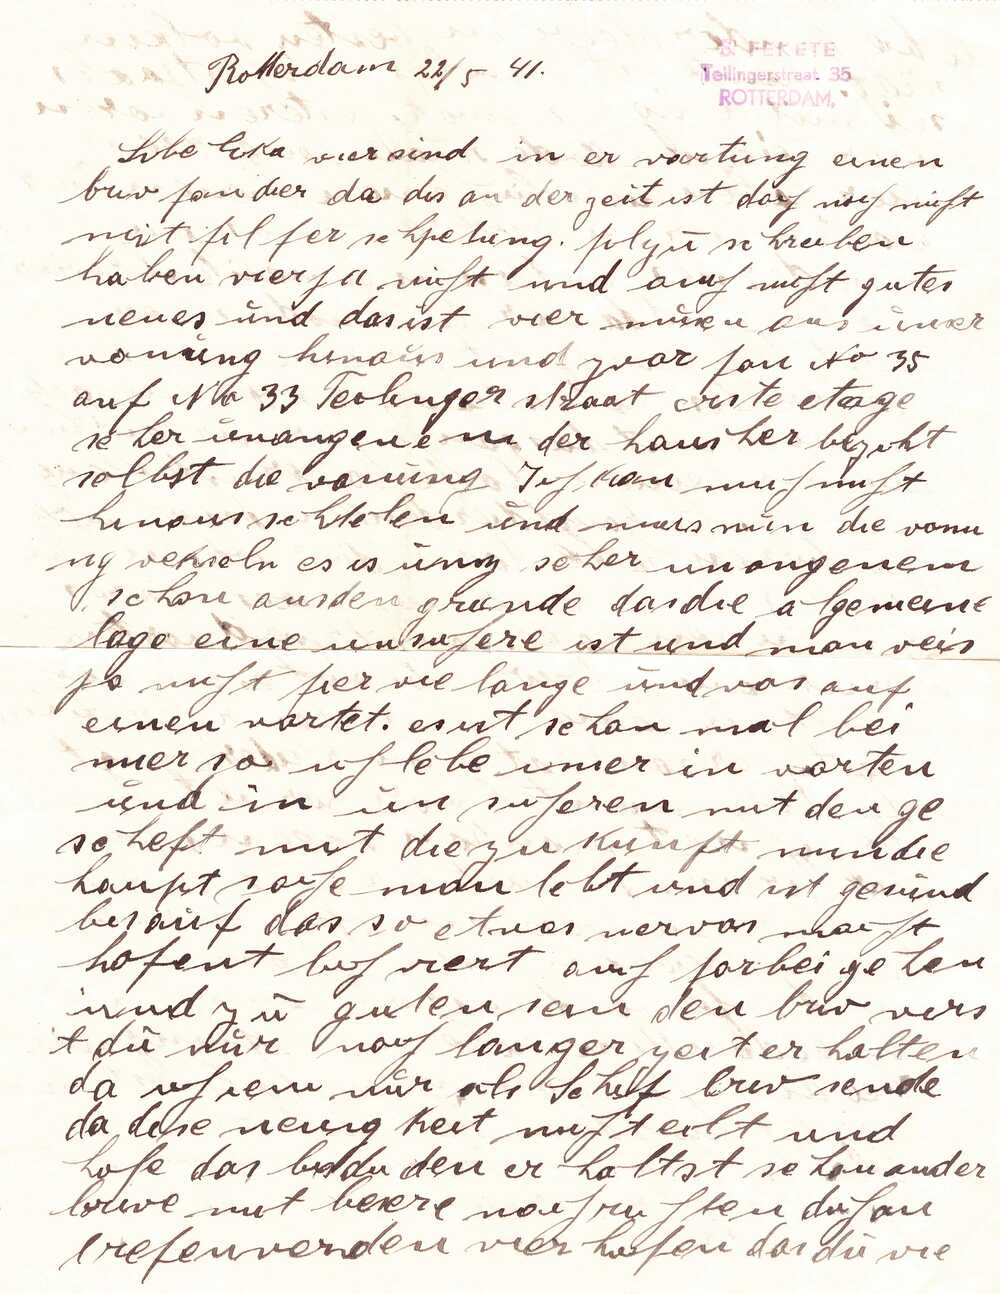 Rotterdam 22/5 41.
S. FEKETE
Teilingerstraat 35
ROTTERDAM.
Libe Erka vier sind in er vartung einen
briv fan dier da des an der zeit ist doch noch nicht
mit fil fer schpetung. fil zu schreiben
haben vier ja nicht und auch nicht gutes
neues und das ist vier müsen aus unser
vonung hinaus und zvar fan No 35
auf No 33 Teilinger straat erste etage
seher unangenem der haus her bezieht
selbst die vonung Ich kan mich nicht
hinaus schtelen und mus nun die vonu
ng vekseln es is uns seher unangenem
schon aus den grunde das die algemeine
lage eine unsichere ist und man veis
ja nicht fier vie lange und vas auf
einen vartet. es ist schon mal bei
mier so ich lebe imer in varten
und in un sicheren mit den ge
scheft mit die zu kunft nun die
haupt sache man lebt und ist gesund
bis auf das so etvas nervos macht
hofent lich viert auch forbei gehen
und zu guten sein den briv viers
t du nur noch langer zeit er halten
da ich iem nur als Schif briv sende
da dise neuig keit nicht eilt und
hofe das bis du den er haltst schon ander
brive mit besere nachrichten dich an
trefen verden vier hofen das du vie